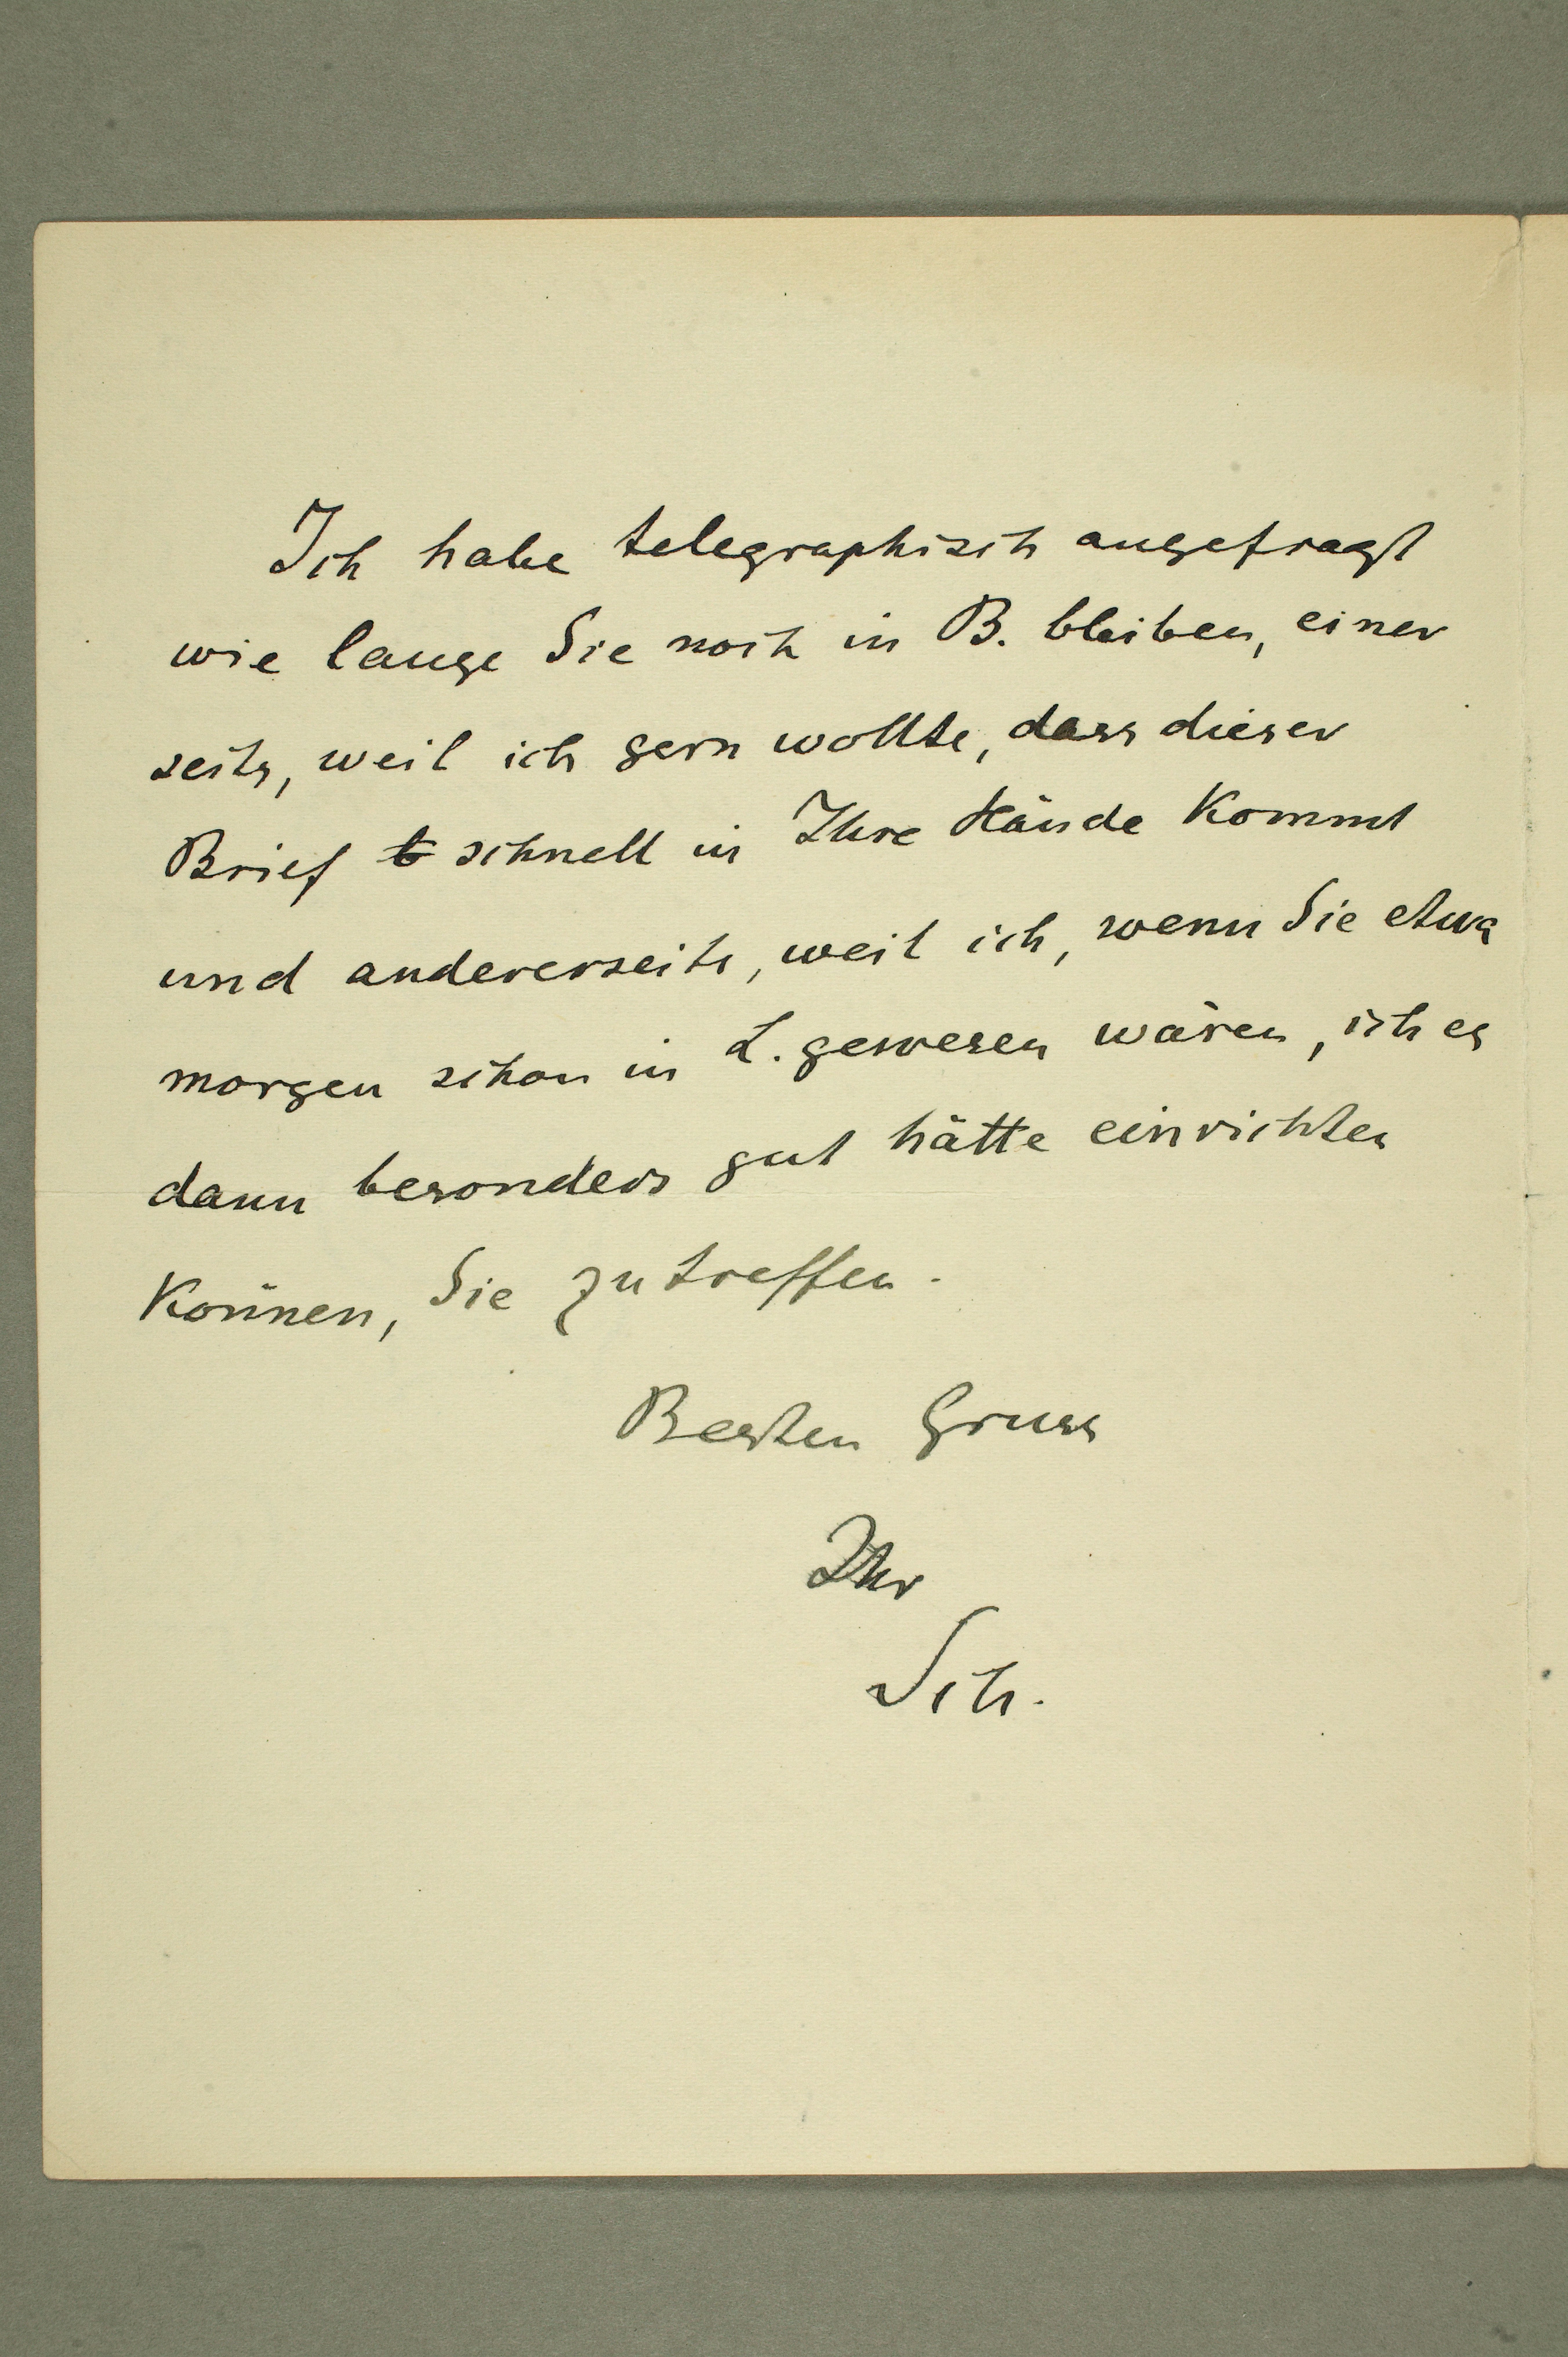 Ich habe telegraphisch angefragt
wie lange Sie noch in B. bleiben, einer
seits, weil ich gern wollte, dass dieser
Brief schnell in Ihre Hände kommt
und andererseits, weil ich, wenn Sie etwa
morgen schon in L. gewesen wären, ich es
dann besonders gut hätte einrichten
können, Sie zu treffen.
Besten Gruss
Ihr
Sch.